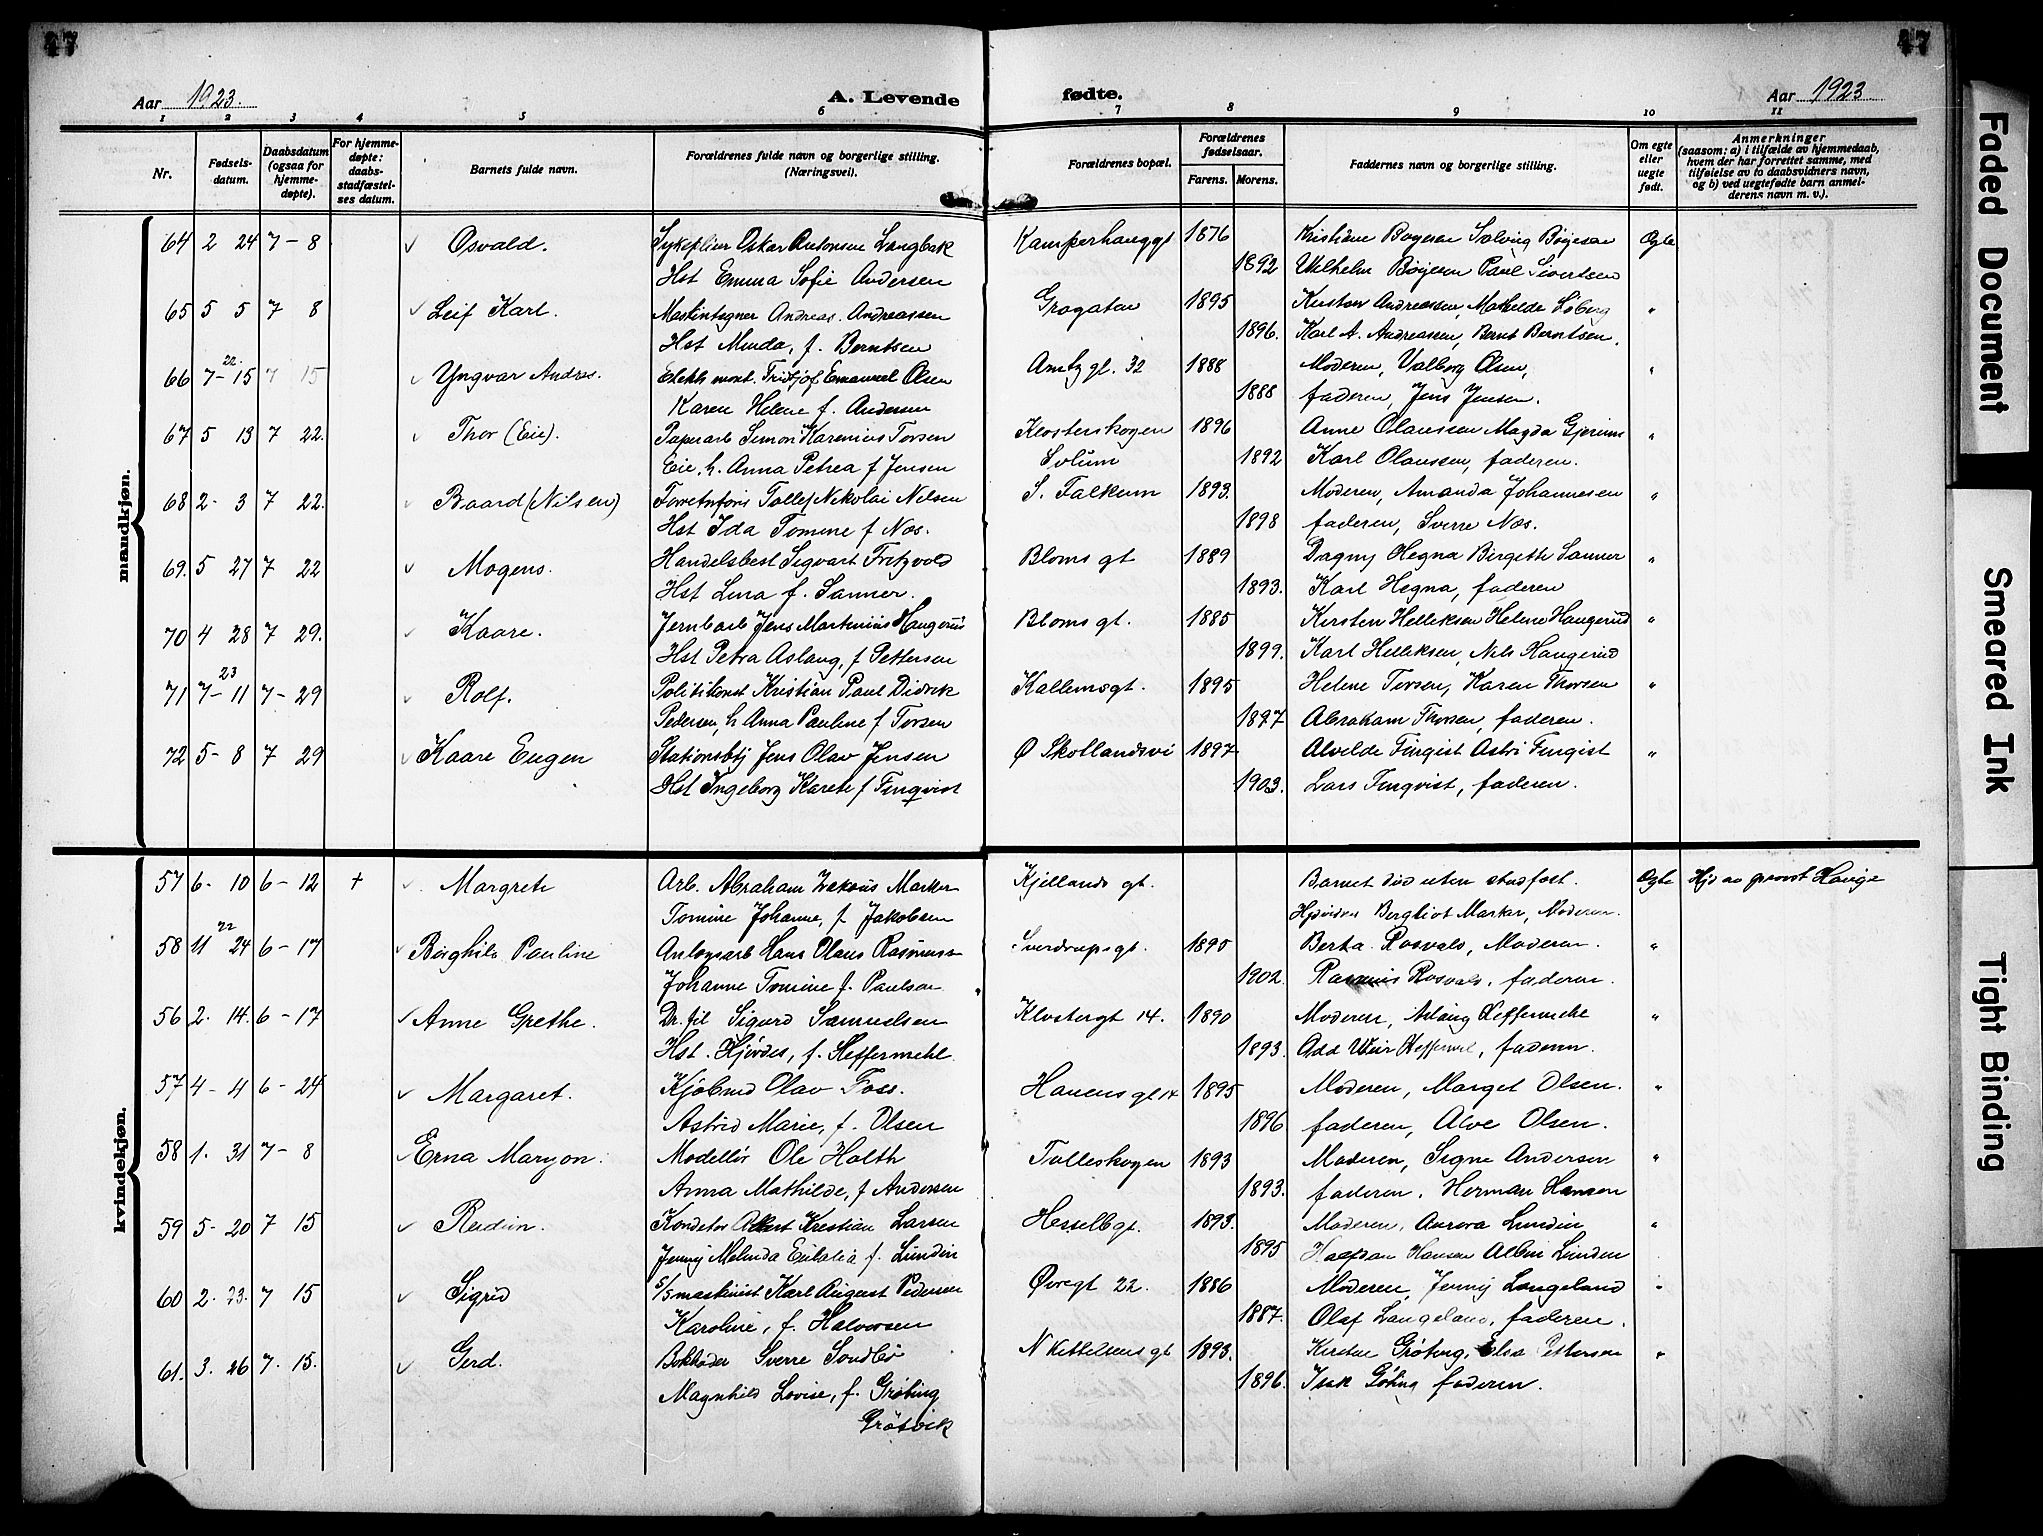 47
47
Aar 1923.
A. Levende
fødte.
Aar 1923
1 2 3 4 5 6 7 8 9 10 11
Nr.
Fødsels-
datum.
Daabsdatum
(ogsaa for
hjemme-
døpte).
For hjemme-
døpte:
daabs-
stadfæstel-
ses datum.
Barnets fulde navn.
Forældrenes fulde navn og borgerlige stilling.
(Næringsvei).
Forældrenes bopæl.
Forældrenes
fødselsaar.
Farens. Morens.
Faddernes navn og borgerlige stilling.
Om egte
eller
uegte
født.
Anmerkninger
(saasom: a) i tilfælde av hjemmedaab,
hvem der har forrettet samme, med
tilføielse av to daabsvidners navn,
og b) ved uegtefødte barn anmel-
derens navn m. v.).
mandkjøn.
64 2 24 7 - 8 Osvald. Oskar Antonsen Langbak Kamperhauggt 1876 Kristiane Bøyesen Solveig Bøyesen Egte
Hst Emma Sofie Andersen 1892 Wilhelm Bøyesen Paul Sivertsen
65 5 5 7 8 Leif Karl. Maskintegner Andreas Andreassen Grogaten 1895 Kirsten Andreassen, Mathilde Søberg "
Hst Minda, f. Berntsen 1896. Karl A. Andreassen, Bernt Berntsen,
66 7-15 22. 7 15 Yngvar Andres. Elektr mont. Fridtjof Emanuel Olsen Amtg gt. 32 1888 Moderen, Valborg Olsen, "
Karen Helene f. Andersen 1888 faderen, Jens Jensen.
67 5 13 7 22. Thor (Eie). Papirarb Simon Karenius Torsen Klosterskogen 1896 Anne Olaussen Magda Gjerum "
Eie, h. Anna Petrea f Jensen Solum 1892 Karl Olaussen, faderen.
68 2- 3 7 22. Baard (Nilsen) Tollef Nikolai Nilsen S. Falkum 1893. Moderen, Amanda Johannesen "
Hst Ida Tomine f Næs. 1898 faderen, Sverre Næs.
69. 5 27 7 22 Mogens. Handelsbest Sigvart Fritzvold Bloms gt 1889 Dagny Hegna Birgith Sanner "
Hst Lina f. Sanner. 1893. Karl Hegna, faderen
70 4 28 7 29. Kaare. Jernbarb Jens Martinius Haugerud Bloms gt. 1885 Kirsten Helliksen Helene Haugerud "
Hst Petra Aslaug, f Pettersen 1899. Karl Helliksen, Nils Haugerud
71 7-11 23 7-29 Rolf. Politikonst Kristian Paul Didrik Kallemsgt. 1895 Helene Torsen, Karen Thorsen "
Pedersen, h Anna Pauline f Torsen 1897 Abraham Thorsen, faderen.
72 5- 8 7 29 Kaare Eugen Stationsbtj Jens Olav Jensen Ø Skotlandsvi 1897 Alvilde Finqist Astri Finqist "
Hst Ingeborg Karete f Finqvist 1903. Lars Finqvist, faderen.
kvindekjøn.
57 6- 10 6-12 + Margrete Arb. Abraham Markar Kjellands gt. Barnet død uten stadfæst. Egte Hjd av provst Hauge
Tomine Johanne, f Jakobsen Bergliot Markar, Moderen.
58 11 24 22 6-17 Borghild Pauline Hans Olaus Rasmus Sverdrupsgt. 1895 Berta Rosvald, Moderen. "
Johanne Tomine f. Paulsen 1902 Rasmus Rosvald, faderen.
56 2. 14. 6-17 Anne Grethe. Dr. fil Sigurd Samuelsen Klostergt 14. 1890 Moderen, Aslaug Heffermehl "
Hst. Hjørdis, f. Heffermehl 1893. Odd Weir Heffermel, faderen.
57 4- 4 6- 24 Margaret. Kjøbmd Olav Foss. Havensgt 14 1895 Moderen, Marget Olsen. "
Astrid Marie, f. Olsen 1896 faderen, Alve Olsen.
58 1. 31 7-8 Erna Maryon. Modellør Ole Holth Tolleskogen 1893 Moderen, Signe Andersen "
Anna Mathilde, f Andersen 1893. faderen. Herman Hansen
59 5- 20 7 15 Reidun. Konditor Albert Kristian Larsen Hesselbgt. 1893. Moderen. Aurora Lundin "
Jenny Melinda Eulalia f. Lundin 1895 Haagdan Hansen Albin Lundin
60 2. 23. 7 15 Sigrid S/S maskinist Karl August Pedersen Øvregt 22. 1886 Moderen, Jenny Langeland "
Karoline, f. Halvorsen 1887. Olaf Langeland, faderen.
61. 3. 26 7. 15. Gerd. Bokholder Sverre Sondbø N Kittelsens gt 1893. Kirsten Grøting, Elsa Pettersen "
Magnhild Lovise, f. Grøting 1896. Isak Grøting faderen.
Grøtvik
Faded Document
Smeared Ink
Tight Binding